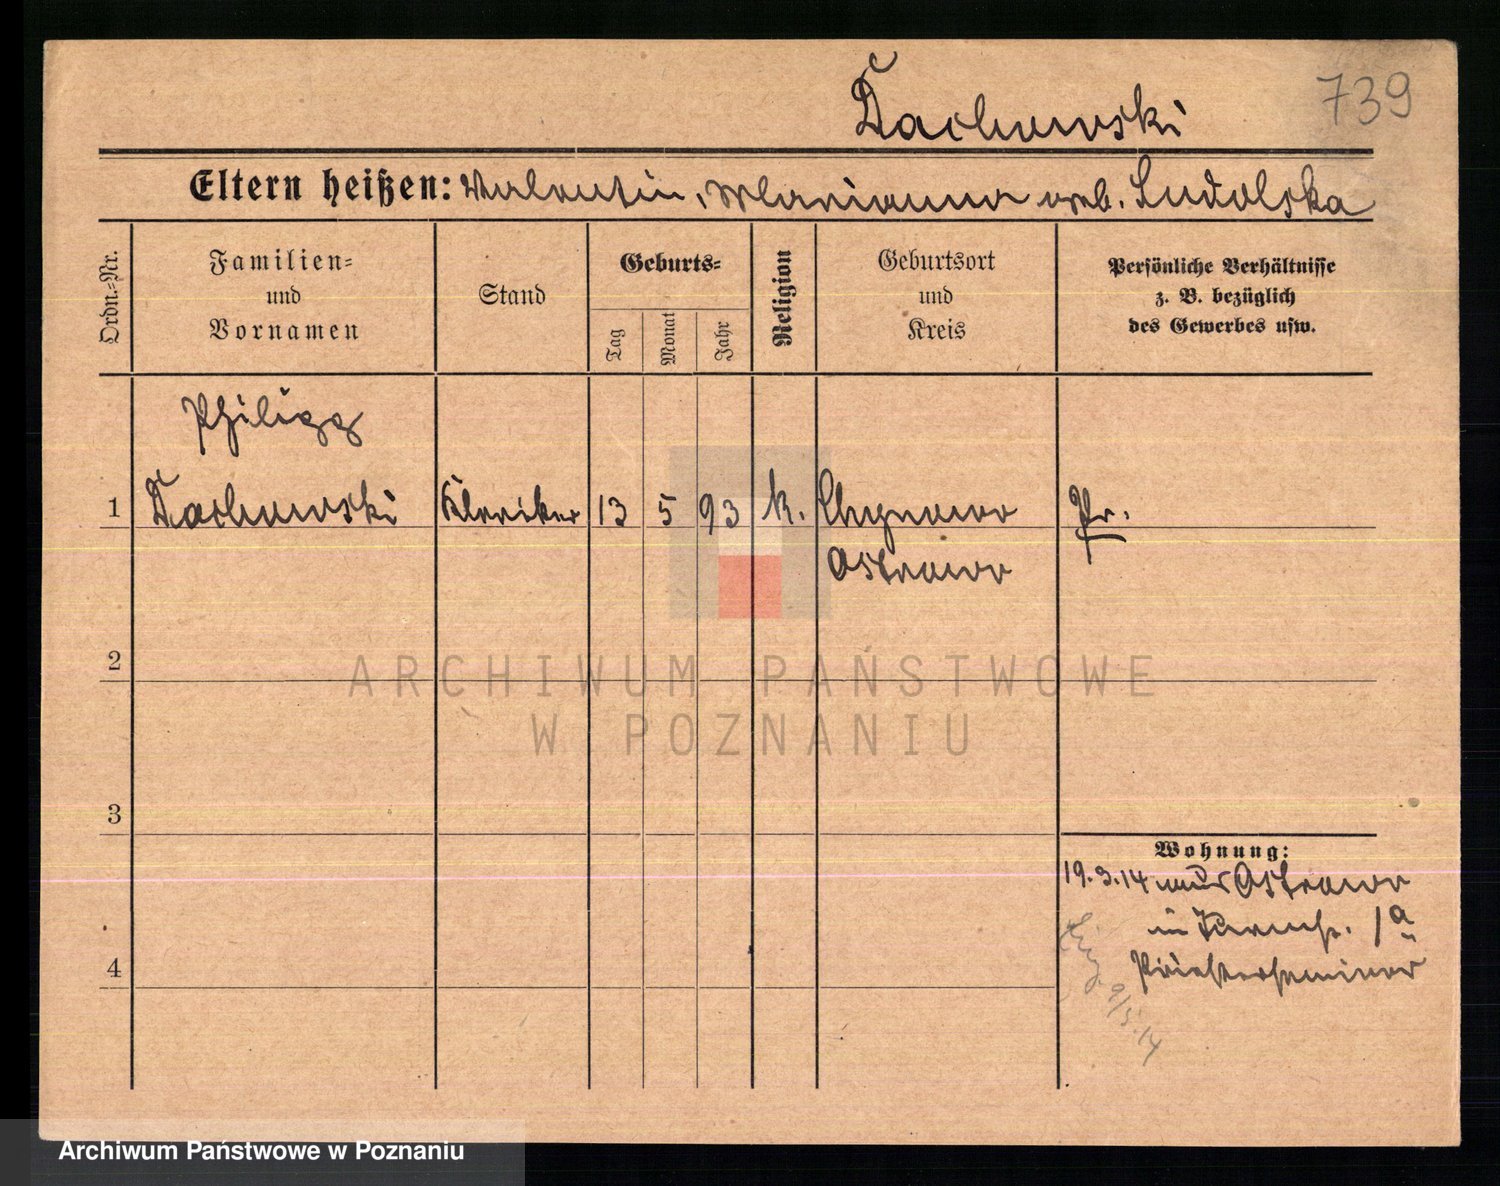 Dachowski
739
Eltern heißen: Valentin, Marianna geb. Sudolska
Ordn.-Nr.
Familien-
und
Vornamen
Stand
Geburts-
Tag
Monat
Jahr
Religion
Geburtsort
und
Kreis
Persönliche Verhältnisse
z. B. bezüglich
des Gewerbes usw.
Philipp
1 Dachowski Kleriker 13 5 93 k. Chynowo Pr.
Ostrowo
2
3
4
Wohnung:
19.3.14 aus Ostrowo
in 1a
Priesterseminar
9/5.14
ARCHIWUM PAŃSTWOWE
W POZNANIU
Archiwum Państwowe w Poznaniu